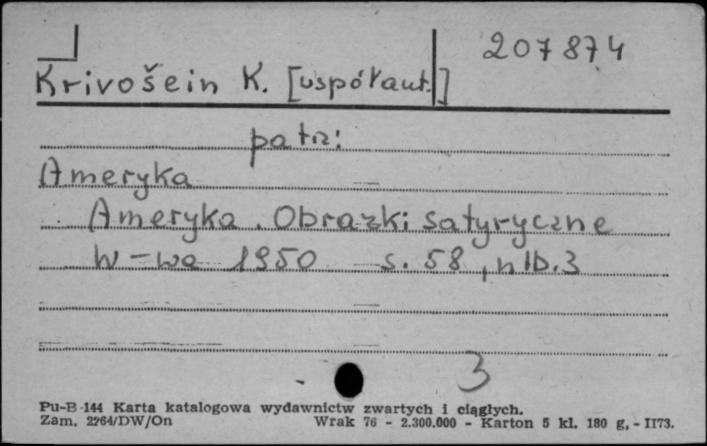 207874
Krivošein K. [współaut.]
patrz:
Ameryka
Ameryka. Obrazki satyryczne
W-wa 1950 s. 58, nlb. 3
3
Pu-B-144 Karta katalogowa wydawnictw zwartych i ciągłych.
Zam. 2264/DW/On Wrak 76 - 2.300.000 - Karton 5 kl. 180 g. - II73.